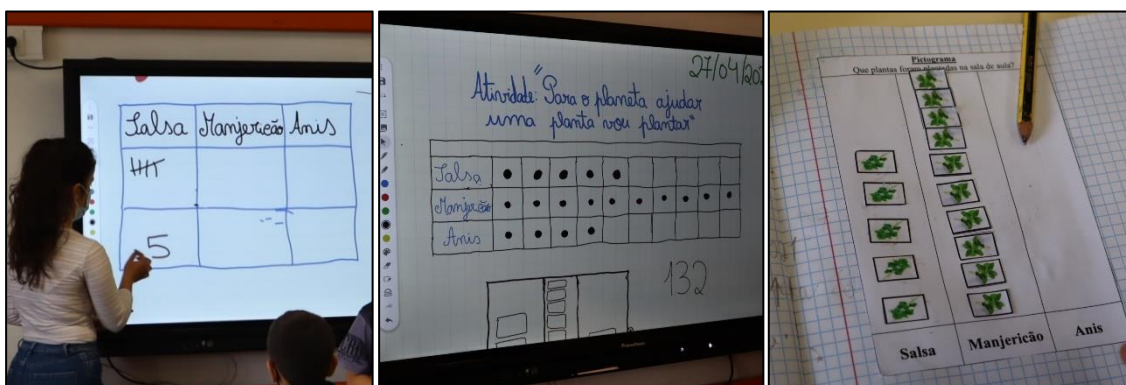 Salsa Manjericão Anis
5
27/04/202
Atividade: "Para o planeta ajudar
uma planta vou plantar"
Salsa
Manjericão
Anis
132
Pictograma
Que plantas foram plantadas na sala de aula?
Salsa Manjericão Anis